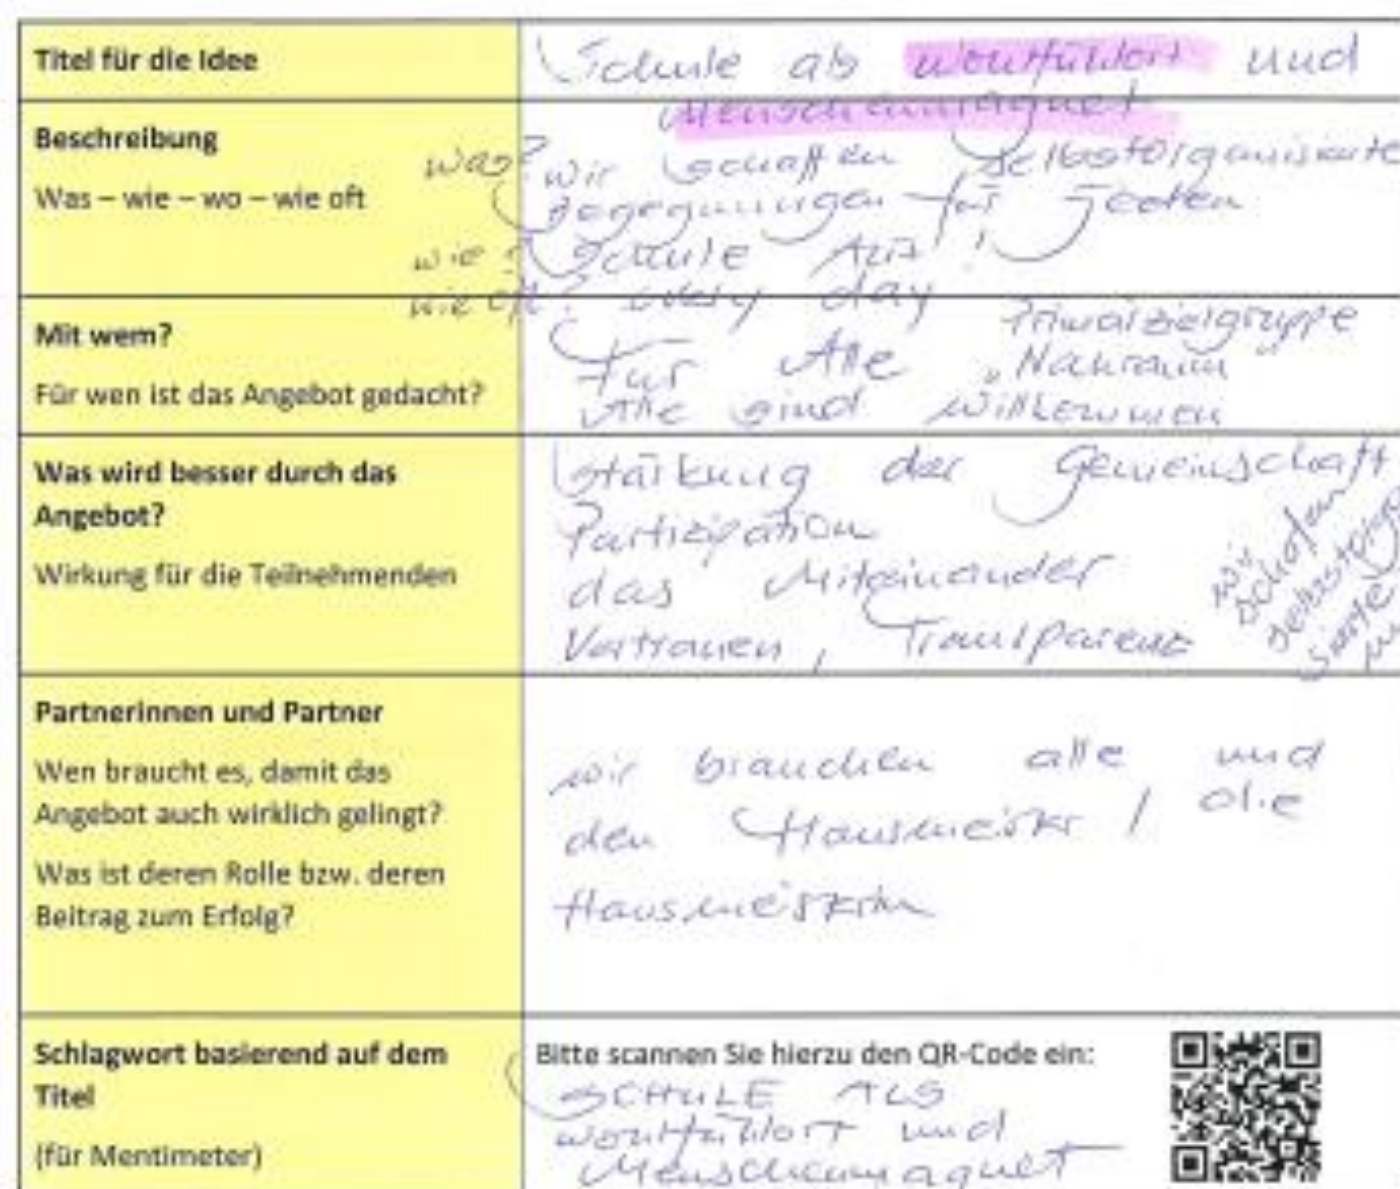 Titel für die Idee
Schule als Wohlfühlort und
Menschenmagnet
Beschreibung
Was – wie – wo – wie oft
was? wir schaffen selbstorganisierte
Begegnungen für Jeden
wie? Schule Auf!
wie oft? every day
Mit wem?
Für wen ist das Angebot gedacht?
Primärzielgruppe
Für Alle „Nahraum“
Alle sind willkommen
Was wird besser durch das
Angebot?
Wirkung für die Teilnehmenden
Stärkung der Gemeinschaft
Partizipation
das Miteinander
Vertrauen, Transparenz
wir
schaffen
Partnerinnen und Partner
Wen braucht es, damit das
Angebot auch wirklich gelingt?
Was ist deren Rolle bzw. deren
Beitrag zum Erfolg?
wir brauchen alle und
den Hausmeister / die
Hausmeisterin
Schlagwort basierend auf dem
Titel
(für Mentimeter)
Bitte scannen Sie hierzu den QR-Code ein:
SCHULE ALS
Wohlfühlort und
Menschenmagnet